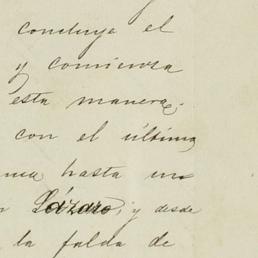 concluye el
y comienza
esta manera:
con el última
hasta un
Lázaro; y desde
la falda de